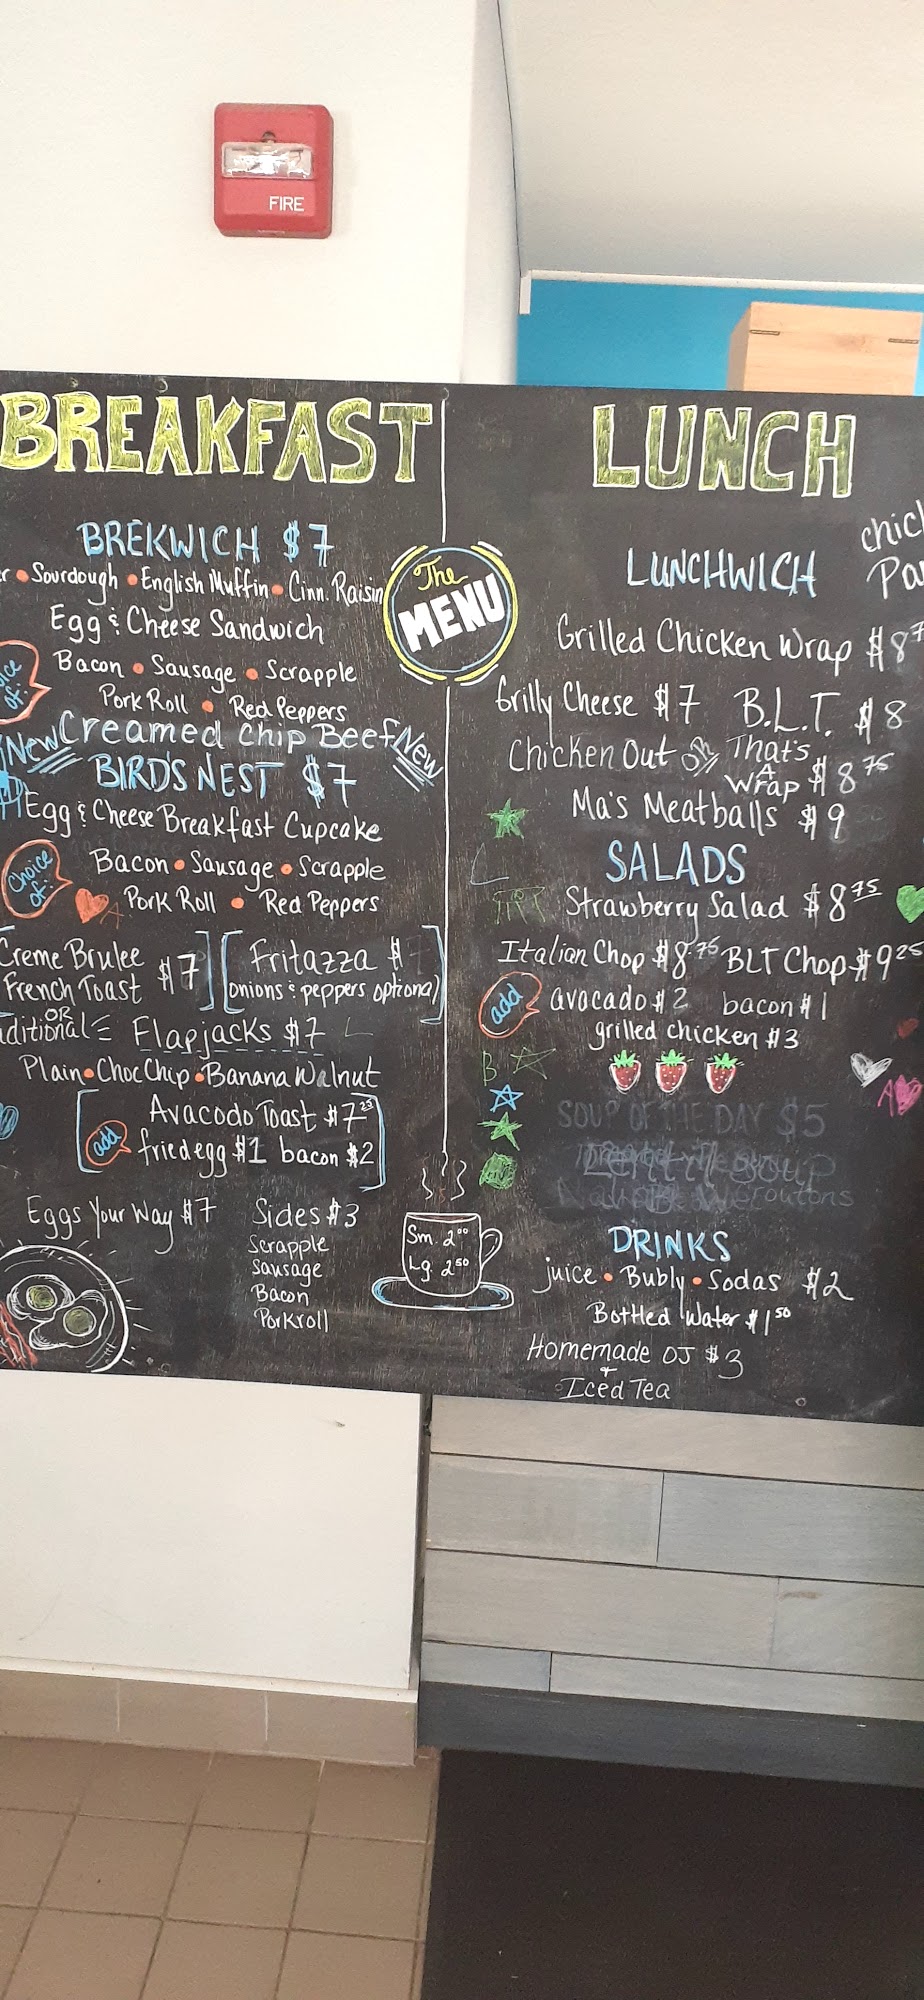 FIRE
BREAKFAST
BREKWICH $7
Sourdough • English Muffin • Cinn. Raisin
Egg & Cheese Sandwich
Bacon • Sausage • Scrapple
Pork Roll • Red Peppers
New Creamed Chip Beef New
BIRDS NEST $7
Egg & Cheese Breakfast Cupcake
Choice of:
Bacon • Sausage • Scrapple
Pork Roll • Red Peppers
Creme Brulee
French Toast $7
OR
Fritazza $7
onions & peppers optional
Flapjacks $7
Plain • Choc Chip • Banana Walnut
Avacodo Toast $7.25
add
fried egg $1 bacon $2
Eggs Your Way $7
Sides $3
Scrapple
Sausage
Bacon
Porkroll
The
MENU
Sm. 2.00
Lg. 2.50
LUNCH
LUNCHWICH
Grilled Chicken Wrap
Grilly Cheese $7 B.L.T. $8
Chicken Out OR That's
A
Wrap $8.75
Ma's Meatballs $9
SALADS
Strawberry Salad $8.75
Italian Chop $8.75 BLT Chop $9.25
add
avocado $2 bacon $1
grilled chicken $3
SOUP OF THE DAY $5
DRINKS
juice • Bubly • Sodas $2
Bottled Water $1.50
Homemade OJ $3
+
Iced Tea